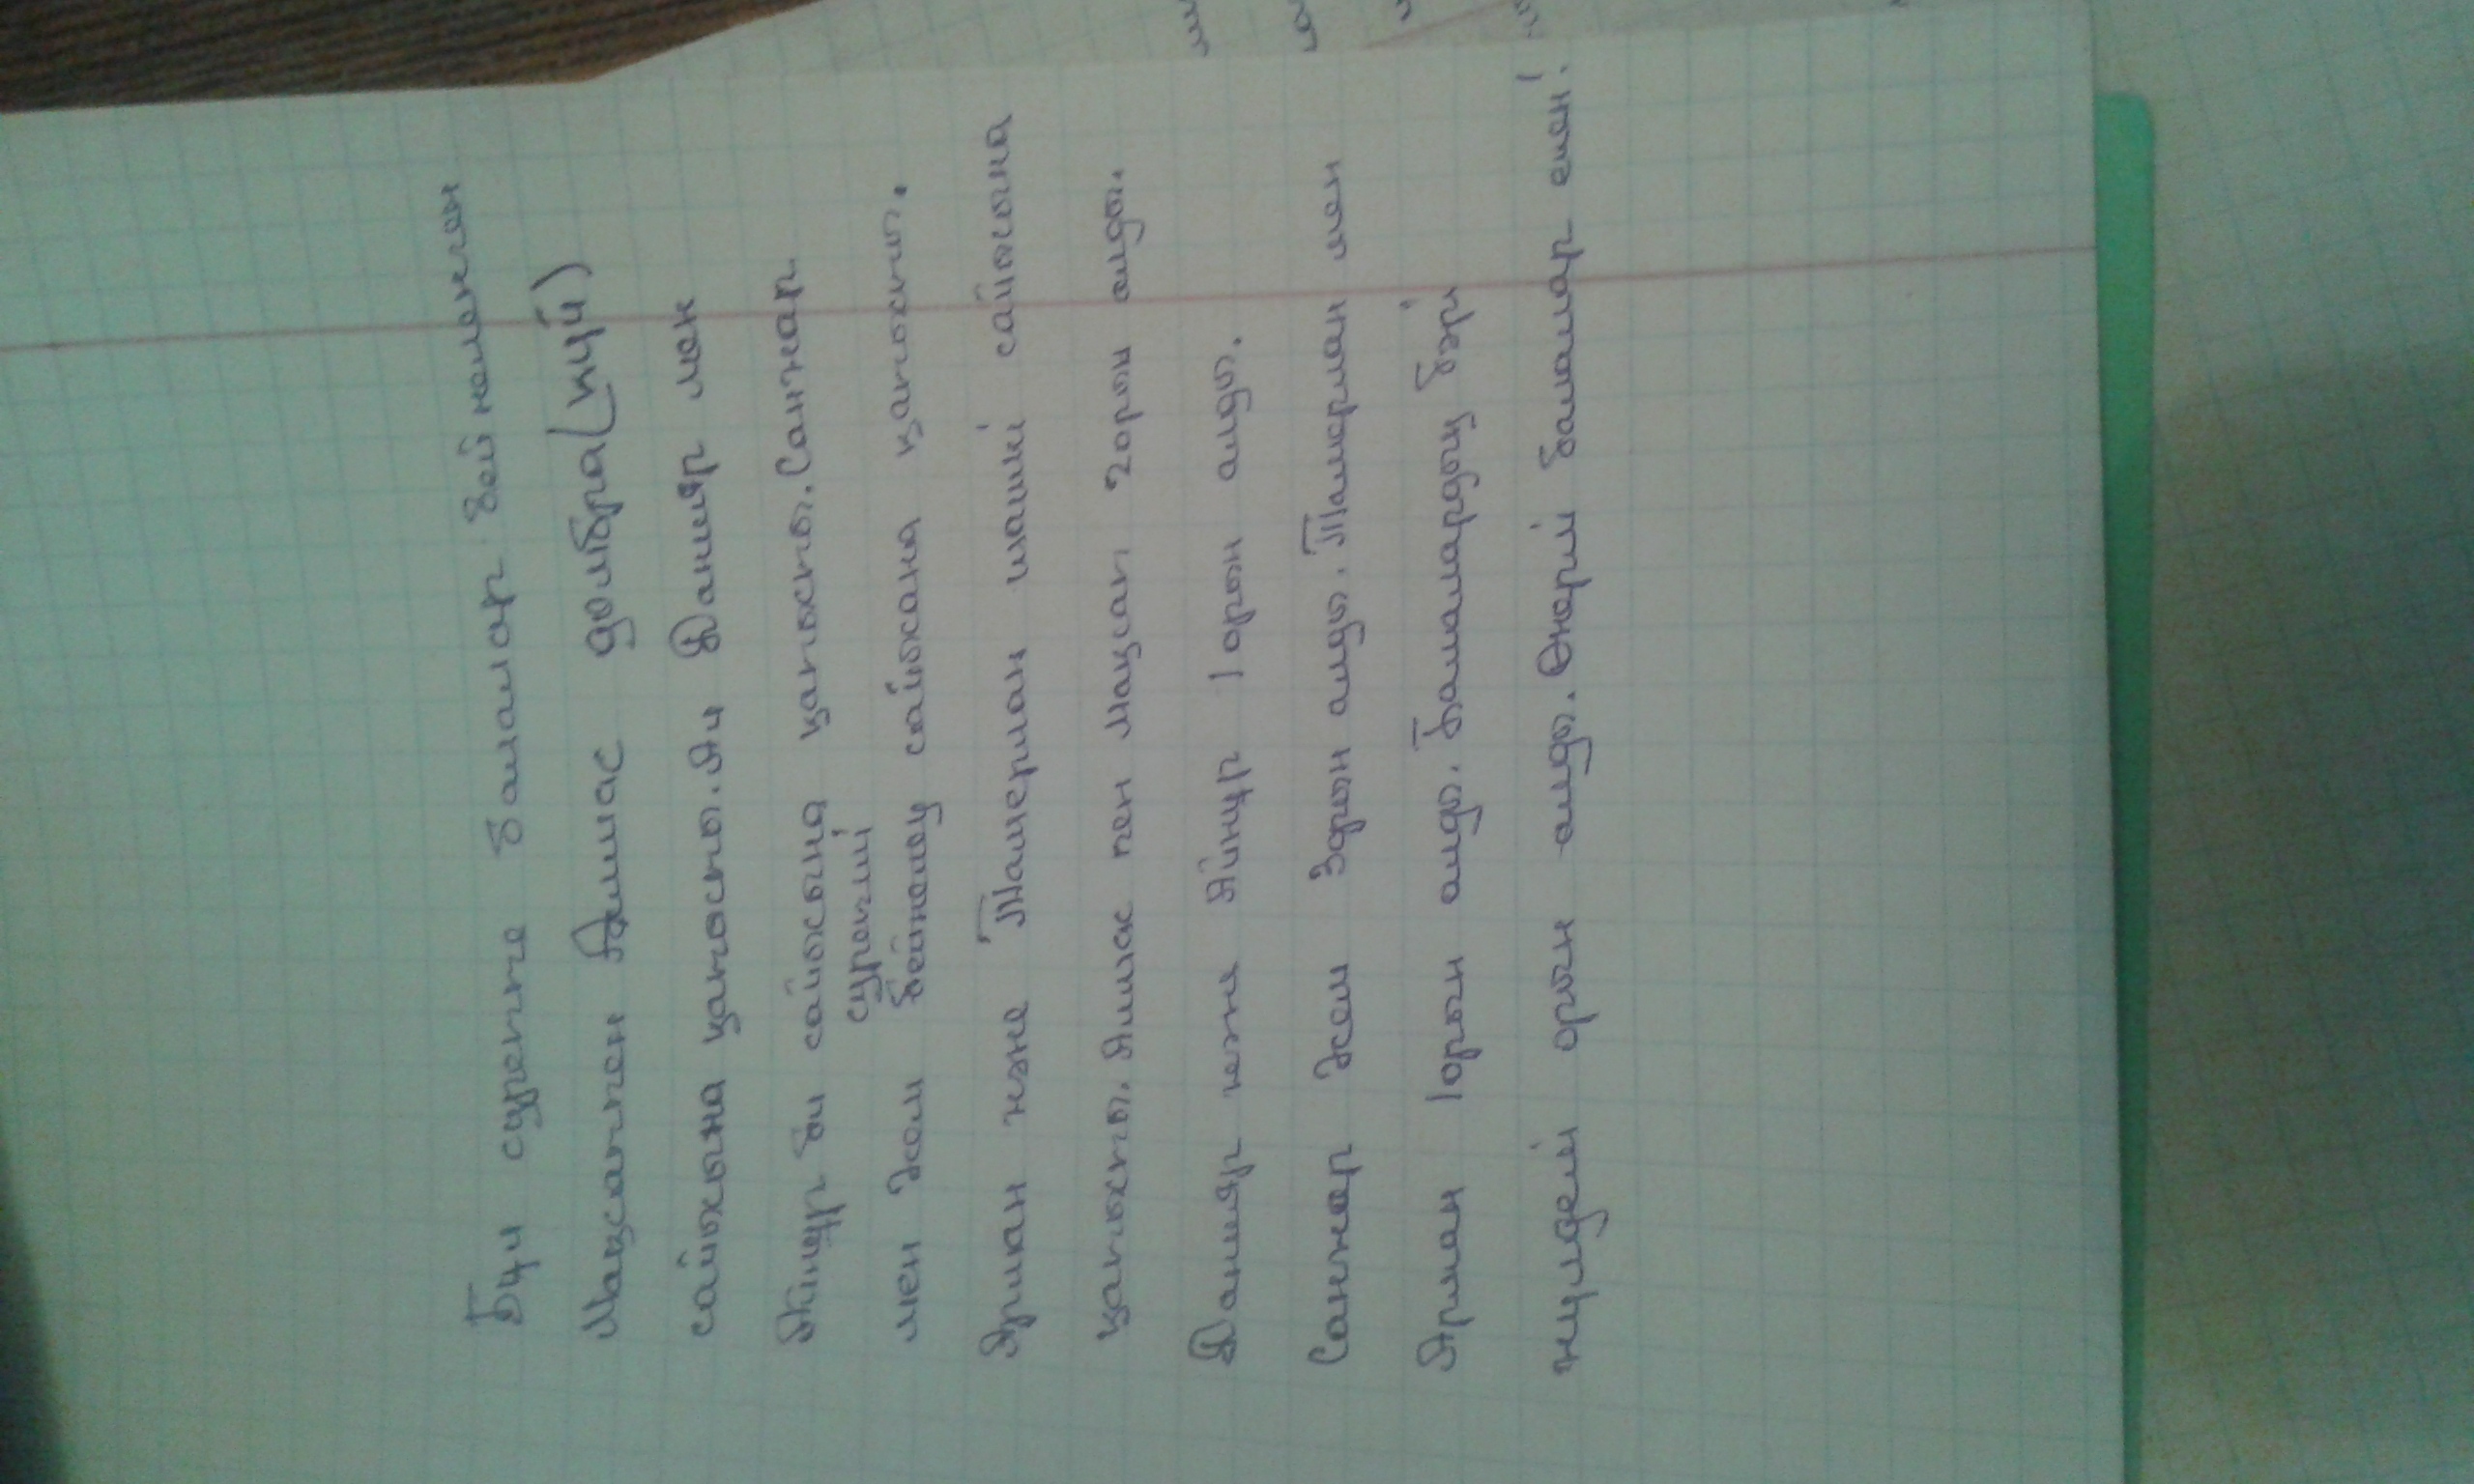 Бұл суретте балалар бейнеленген
Мақсатпен Алмас домбра(күй)
сайысына қатысты. Ал Данияр мен
Айнұр би сайысына қатысты. Санжар
суретті
мен Әсел бейнелеу сайысына қатысты.
Арман және Тамерлан шашкі сайысына
қатысты. Алмас пен Мақсат 2орын алды.
Данияр және Айнұр 1орын алды.
Санжар Әсел 3орын алды. Тамерлан мен
Арман 1орын алды. Балалардың бәрі
жүлделі орын алды. Өнерлі балалар екен!